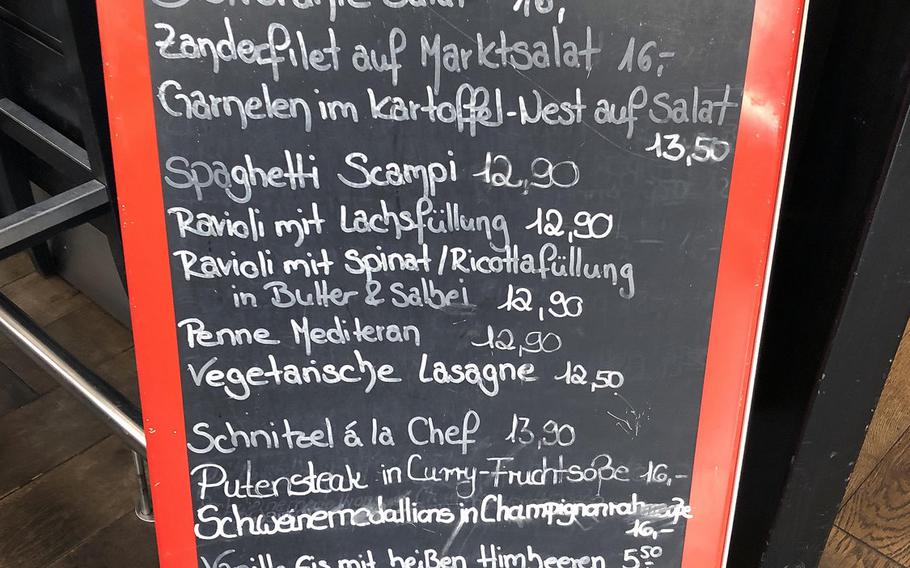 Salat 16,
Zanderfilet auf Marktsalat 16,-
Garnelen im Kartoffel-Nest auf Salat
13,50
Spaghetti Scampi 12,90
Ravioli mit Lachsfüllung 12,90
Ravioli mit Spinat/Ricottafüllung
in Butter & Salbei 12,90
Penne Mediteran 12,90
Vegetarische Lasagne 12,50
Schnitzel á la Chef 13,90
Putensteak in Curry-Fruchtsoße 16,-
Schweinemedallions in Champignonrahmsoße
16,-
Vanille Eis mit heißen Himbeeren 5,50